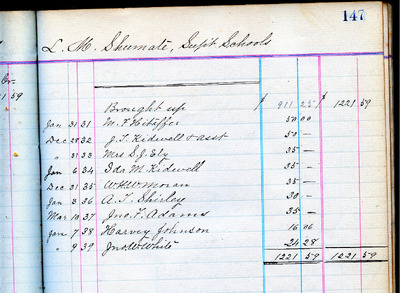 147
L. M. Shumate, Supt Schools
Cr.
1 59
Brought up $ 911 25 $ 1221 59
Jan 31 31 M. F. 50 00
Dec 28 32 J. T. Kidwell & asst 50 —
" 31 33 Mrs S. J. Ely 35 —
Jan 6 34 Ida M. Kidwell 35 —
Dec 31 35 W H W Moran 35 —
Jan 3 36 A. T. Shirley 30 —
Mar 10 37 Jno. T. Adams 35 —
Jan 7 38 Harvey Johnson 16 06
" 9 39 Jno W White 24 28
1221 59 1221 59